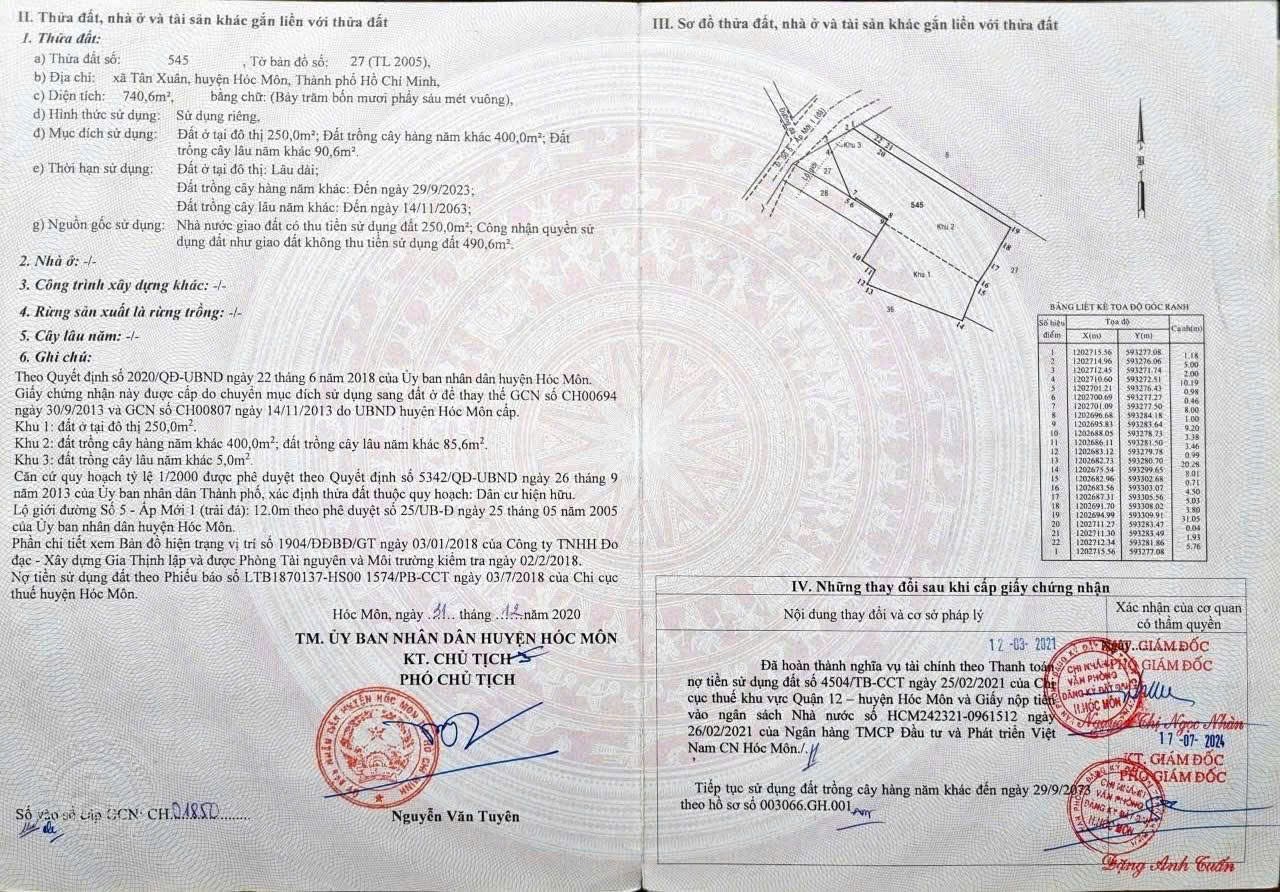 II. Thửa đất, nhà ở và tài sản khác gắn liền với thửa đất
1. Thửa đất:
a) Thửa đất số: 545 , Tờ bản đồ số: 27 (TL 2005),
b) Địa chỉ: xã Tân Xuân, huyện Hóc Môn, Thành phố Hồ Chí Minh,
c) Diện tích: 740,6m², bằng chữ: (Bảy trăm bốn mươi phẩy sáu mét vuông),
d) Hình thức sử dụng: Sử dụng riêng,
đ) Mục đích sử dụng: Đất ở tại đô thị 250,0m²; Đất trồng cây hàng năm khác 400,0m²; Đất
trồng cây lâu năm khác 90,6m².
e) Thời hạn sử dụng: Đất ở tại đô thị: Lâu dài;
Đất trồng cây hàng năm khác: Đến ngày 29/9/2023;
Đất trồng cây lâu năm khác: Đến ngày 14/11/2063;
g) Nguồn gốc sử dụng: Nhà nước giao đất có thu tiền sử dụng đất 250,0m²; Công nhận quyền sử
dụng đất như giao đất không thu tiền sử dụng đất 490,6m².
2. Nhà ở: -/-
3. Công trình xây dựng khác: -/-
4. Rừng sản xuất là rừng trồng: -/-
5. Cây lâu năm: -/-
6. Ghi chú:
Theo Quyết định số 2020/QĐ-UBND ngày 22 tháng 6 năm 2018 của Ủy ban nhân dân huyện Hóc Môn.
Giấy chứng nhận này được cấp do chuyển mục đích sử dụng sang đất ở để thay thế GCN số CH00694
ngày 30/9/2013 và GCN số CH00807 ngày 14/11/2013 do UBND huyện Hóc Môn cấp.
Khu 1: đất ở tại đô thị 250,0m².
Khu 2: đất trồng cây hàng năm khác 400,0m²; đất trồng cây lâu năm khác 85,6m².
Khu 3: đất trồng cây lâu năm khác 5,0m².
Căn cứ quy hoạch tỷ lệ 1/2000 được phê duyệt theo Quyết định số 5342/QĐ-UBND ngày 26 tháng 9
năm 2013 của Ủy ban nhân dân Thành phố, xác định thửa đất thuộc quy hoạch: Dân cư hiện hữu.
Lộ giới đường Số 5 - Ấp Mới 1 (trải đá): 12.0m theo phê duyệt số 25/UB-Đ ngày 25 tháng 05 năm 2005
của Ủy ban nhân dân huyện Hóc Môn.
Phần chi tiết xem Bản đồ hiện trạng vị trí số 1904/ĐĐBĐ/GT ngày 03/01/2018 của Công ty TNHH Đo
đạc - Xây dựng Gia Thịnh lập và được Phòng Tài nguyên và Môi trường kiểm tra ngày 02/2/2018.
Nợ tiền sử dụng đất theo Phiếu báo số LTB1870137-HS00 1574/PB-CCT ngày 03/7/2018 của Chi cục
thuế huyện Hóc Môn.
Hóc Môn, ngày 31 tháng 12 năm 2020
TM. ỦY BAN NHÂN DÂN HUYỆN HÓC MÔN
KT. CHỦ TỊCH
PHÓ CHỦ TỊCH
Nguyễn Văn Tuyên
Số vào sổ cấp GCN: CH.01850.........
III. Sơ đồ thửa đất, nhà ở và tài sản khác gắn liền với thửa đất
1
2
4
Khu 3
22
21
20
6
27
28
5.6
7
8
9
545
Khu 2
19
18
17
27
16
15
Khu 1
10
11
12
13
36
14
BẢNG LIỆT KÊ TỌA ĐỘ GÓC RANH
Số hiệu điểm Tọa độ Cạnh(m)
X(m) Y(m)
1 1202715.56 593277.08
1.18
2 1202714.96 593276.06
5.00
3 1202712.45 593271.74
2.00
4 1202710.60 593272.51
10.19
5 1202701.21 593276.43
0.98
6 1202700.69 593277.27
0.46
7 1202701.09 593277.50
8.00
8 1202696.68 593284.18
1.00
9 1202695.83 593283.64
9.20
10 1202688.05 593278.73
3.38
11 1202686.11 593281.50
3.46
12 1202683.12 593279.78
0.99
13 1202682.73 593280.70
20.28
14 1202675.54 593299.65
8.01
15 1202682.96 593302.68
0.71
16 1202683.56 593303.07
4.50
17 1202687.31 593305.56
5.03
18 1202691.70 593308.02
3.80
19 1202694.99 593309.91
31.05
20 1202711.27 593283.47
0.04
21 1202711.30 593283.49
1.93
22 1202712.34 593281.86
5.76
1 1202715.56 593277.08
IV. Những thay đổi sau khi cấp giấy chứng nhận
Nội dung thay đổi và cơ sở pháp lý
Xác nhận của cơ quan
có thẩm quyền
12 -03- 2021
Đã hoàn thành nghĩa vụ tài chính theo Thanh toán
nợ tiền sử dụng đất số 4504/TB-CCT ngày 25/02/2021 của Chi
cục thuế khu vực Quận 12 – huyện Hóc Môn và Giấy nộp tiền
vào ngân sách Nhà nước số HCM242321-0961512 ngày
26/02/2021 của Ngân hàng TMCP Đầu tư và Phát triển Việt
Nam CN Hóc Môn./.
GIÁM ĐỐC
PHÓ GIÁM ĐỐC
CHI NHÁNH
VĂN PHÒNG
ĐĂNG KÝ ĐẤT ĐAI
H.HÓC MÔN
Thị Ngọc Nhàn
17 -07- 2024
KT. GIÁM ĐỐC
PHÓ GIÁM ĐỐC
Tiếp tục sử dụng đất trồng cây hàng năm khác đến ngày 29/9/2073
theo hồ sơ số 003066.GH.001
CHI NHÁNH
VĂN PHÒNG
ĐĂNG KÝ ĐẤT ĐAI
H.HÓC MÔN
Đặng Anh Tuấn